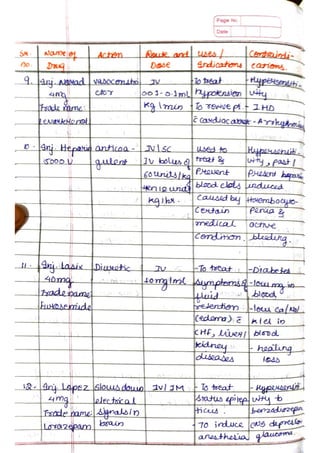 Page No.
Date
Sr. no.
Name of Drug
Action
Route and Dose
Uses / Indications
Contraindications
9. Inj. Norad
4mg
Trade name
vasoconstrictor
IV
0.01-0.1ml
kg/min
To treat
hypotension
To revive pt
cardiac arrest
- Hypersensiti-
vity
- IHD
- Arrhythmia
10. Inj. Heparin
5000 U
anticoa-
gulent
IV/SC
IV bolus
60 units/kg
then 12 unit
kg/hr.
used to
treat &
Prevent
blood clots
caused by
Certain
medical
condition.
Hypersensit-
vity, past/
present heparin
induced
thrombocyto-
penia &
active
bleeding.
11. Inj. Lasix
40mg
Trade name
Furosemide
Diuretic
IV
40mg/ml
-To treat
symptoms of
fluid
retention
(edema)
CHF, liver/
kidney
diseases
-Diabetes
-low mg in
blood
-low ca/Na/
K/cl in
blood
- healing
loss
12. Inj Lopez
4mg
Trade name
Lorazepam
slows down
electrical
signals in
brain
IV/IM
- To treat
status epilep
ticus.
- To induce
anesthesia
- Hypersensit-
vity to
benzodiazepin
CNS depression
glaucoma.